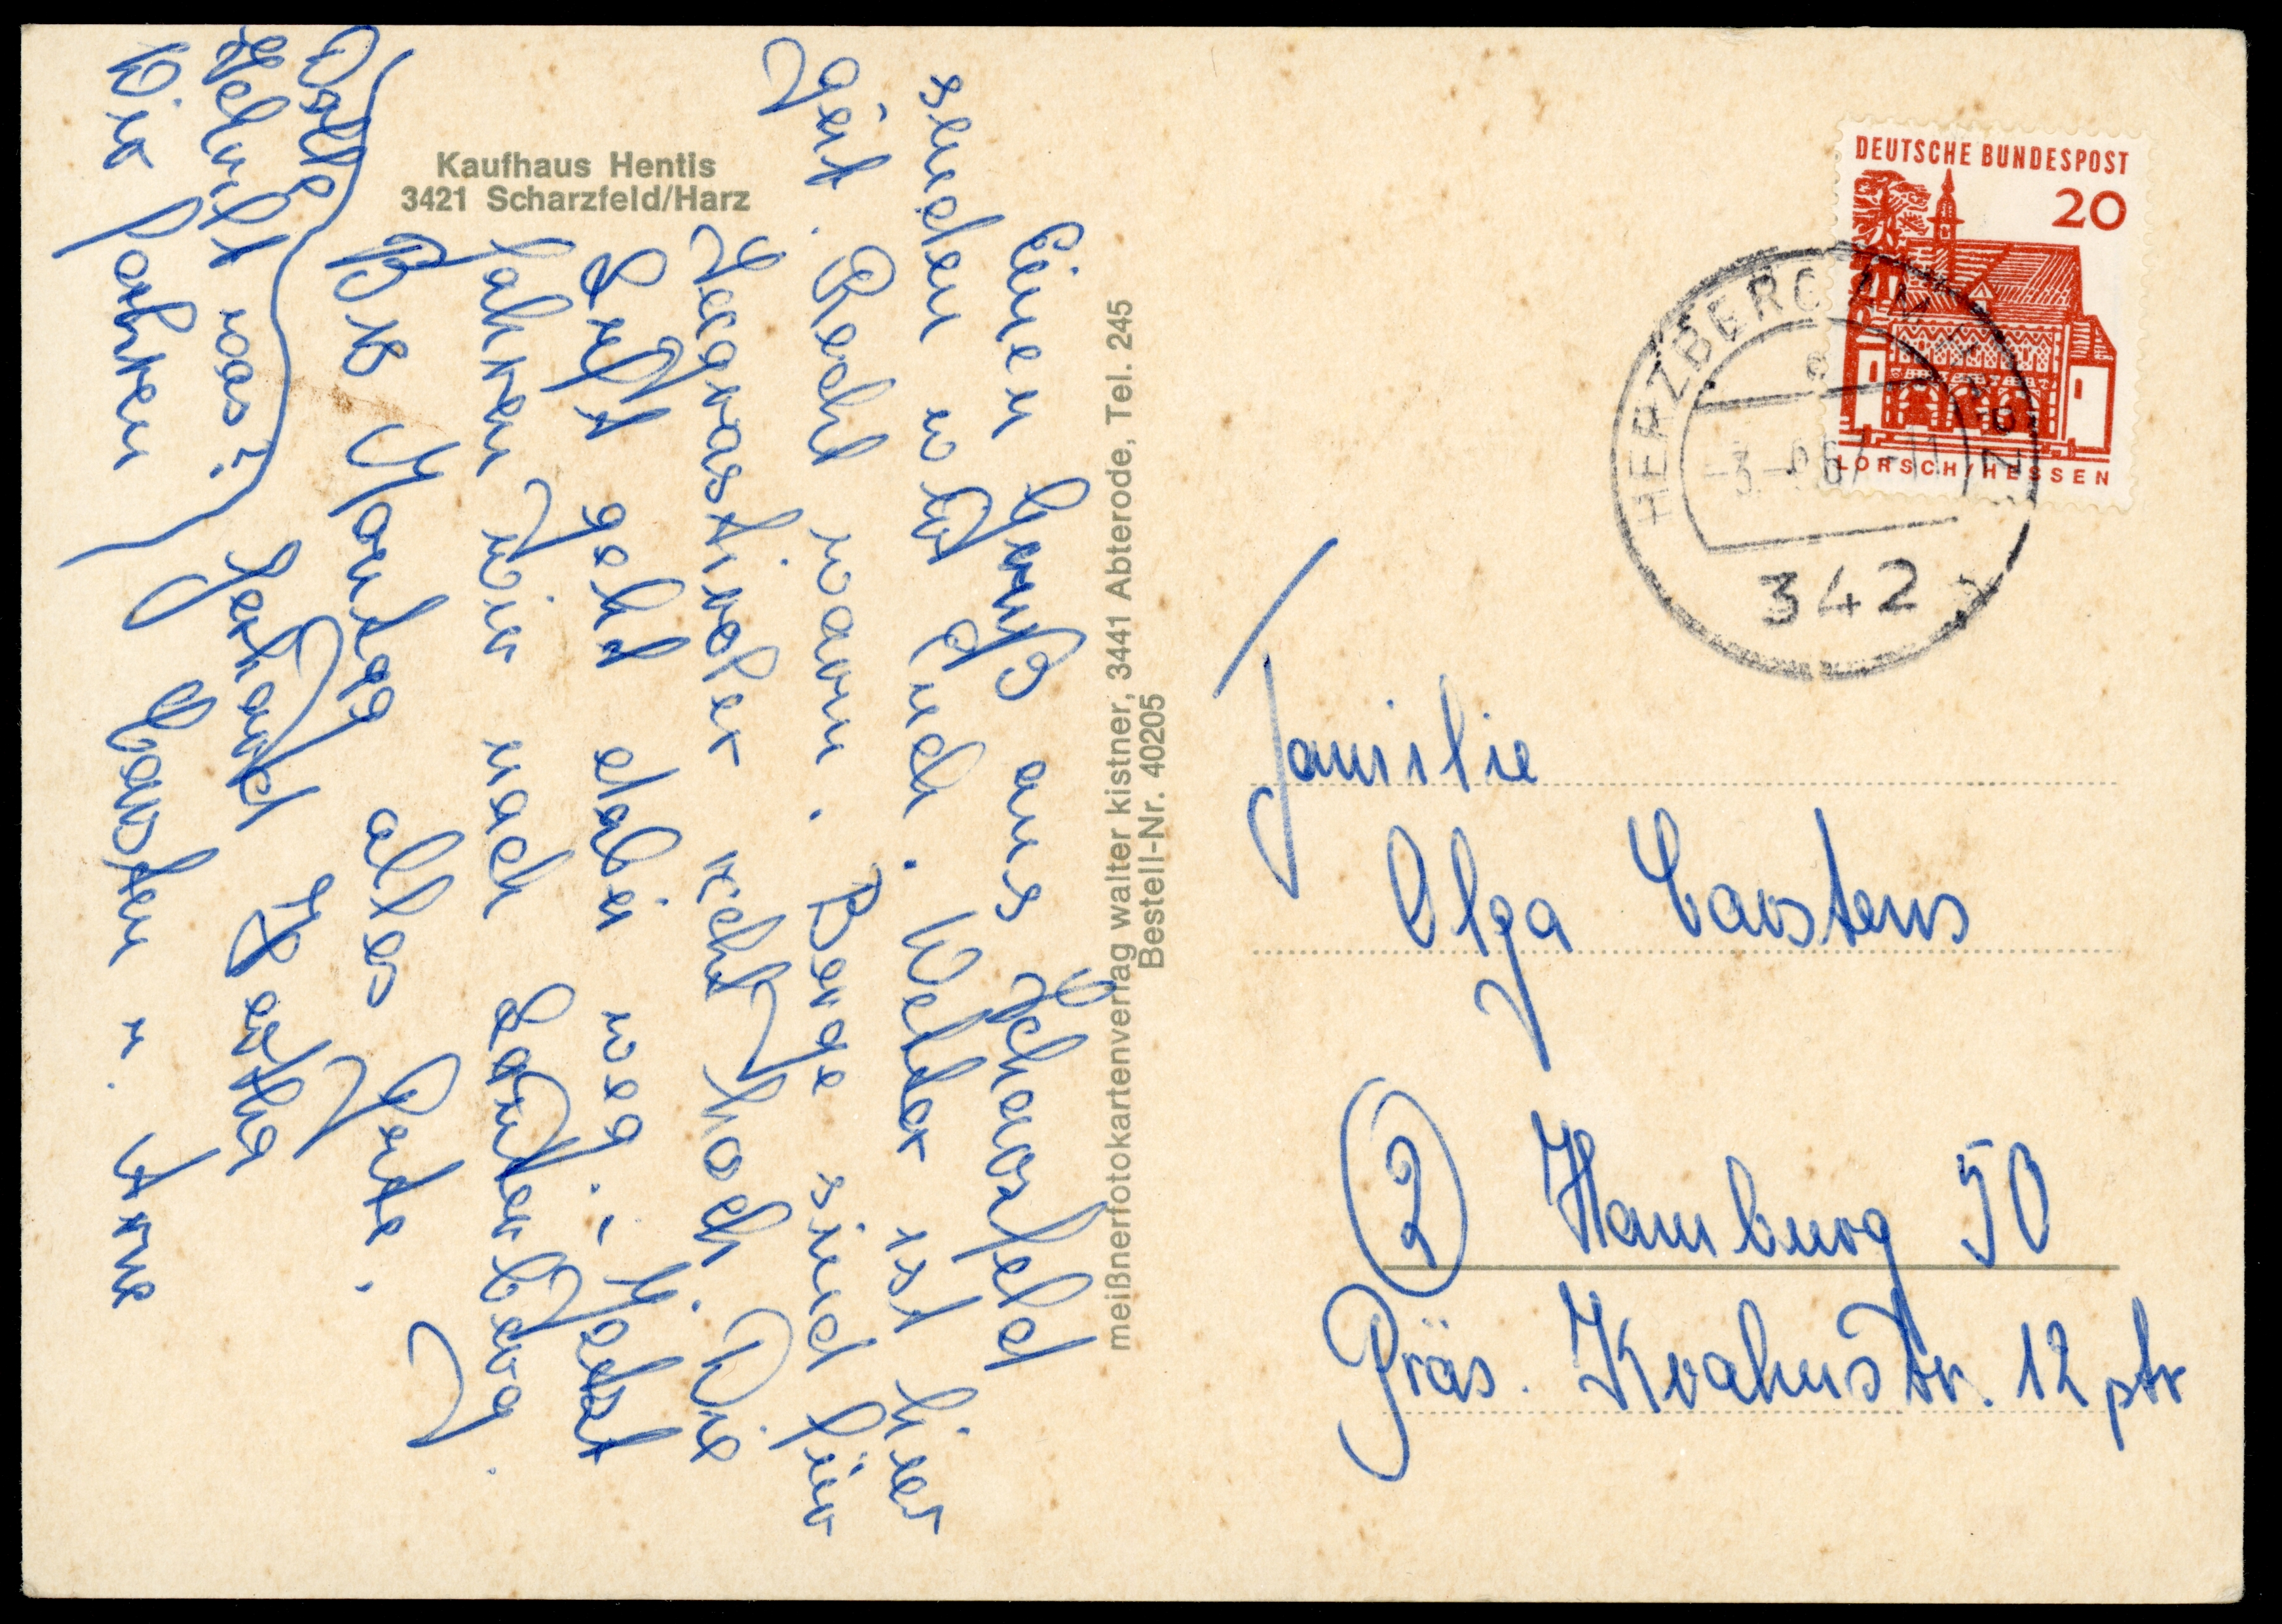 Kaufhaus Hentis
3421 Scharzfeld/Harz
Einen Gruß aus Scharzfeld
senden wir Euch. Wetter ist hier
gut. Recht warm. Berge sind für
recht hoch. Die
Luft geht dabei weg. Jetzt
fahren wir nach Lauterberg.
Bis Montag alles Gute.
Gerhard Hertha
Carsten u. Arne
Wir fahren
Helmut was?
meißnerfotokartenverlag walter kistner, 3441 Abterode, Tel. 245
Bestell-Nr. 40205
DEUTSCHE BUNDESPOST
20
LORSCH/HESSEN
HERZBERG AM HARZ
e
342
Familie
Olga Carstens
2 Hamburg 50
Präs. Krahnstr. 12 ptr